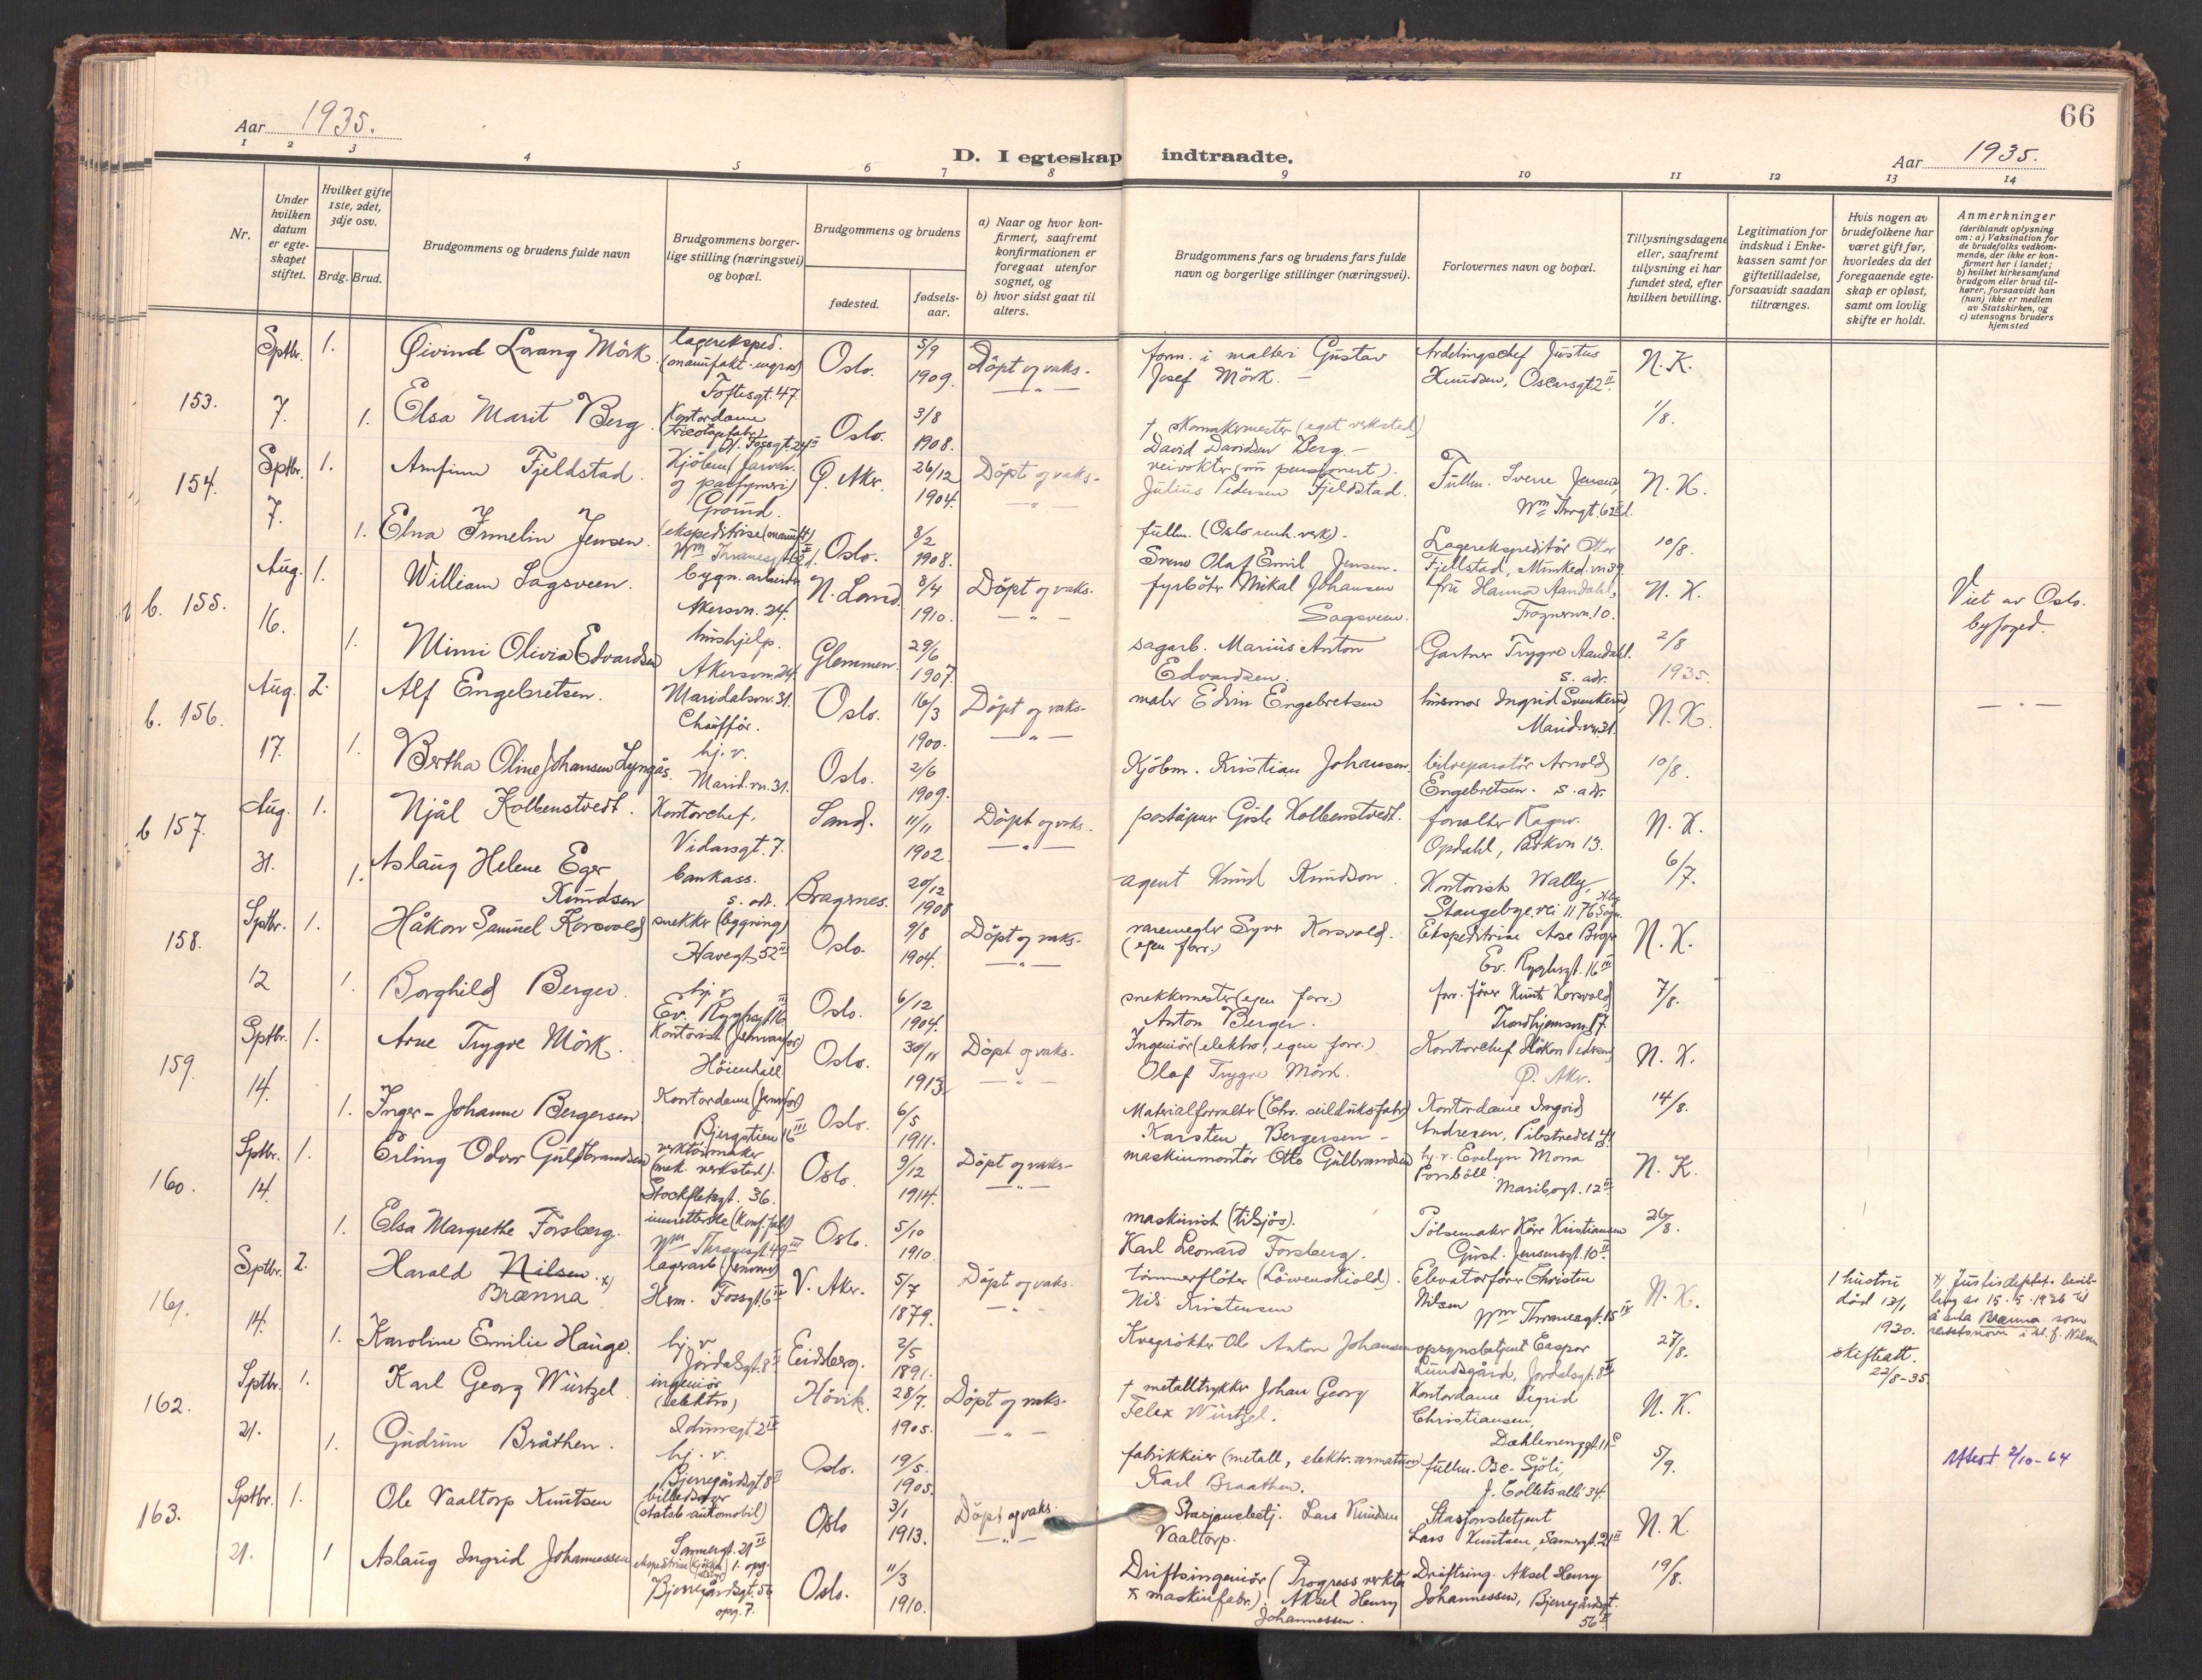 66
Aar 1935.
D. I egteskap indtraadte.
Aar 1935.
1 2 3 4 5 6 7 8 9 10 11 12 13 14
Nr.
Under hvilken datum er egte-skapet stiftet.
Hvilket gifte 1ste, 2det, 3dje osv.
Brdg. Brud.
Brudgommens og brudens fulde navn
Brudgommens borger-lige stilling (næringsvei) og bopæl.
Brudgommens og brudens
fødested.
fødsels-aar.
a) Naar og hvor kon-firmert, saafremt konfirmationen er foregaat utenfor sognet, og
b) hvor sidst gaat til alters.
Brudgommens fars og brudens fars fulde navn og borgerlige stillinger (næringsvei).
Forlovernes navn og bopæl.
Tillysningsdagene eller, saafremt tillysning ei har fundet sted, efter hvilken bevilling.
Legitimation for indskud i Enke-kassen samt for giftetilladelse, forsaavidt saadan tiltrænges.
Hvis nogen av brudefolkene har været gift før, hvorledes da det foregaaende egte-skap er opløst, samt om lovlig skifte er holdt.
Anmerkninger (deriblandt oplysning om: a) Vaksination for de brudefolks vedkom-mende, der ikke er kon-firmert her i landet; b) hvilket kirkesamfund brudgom eller brud til-hører, forsaavidt han (hun) ikke er medlem av Statskirken, og c) utensogns bruders hjemsted
153. Sptbr. 7. 1. Øivind Lorang Mörk. lagereksped. Toftesgt. 47 Oslo. 5/9 1909. Döpt og vaks. form. i malteri Gustav Josef Mörk. Avdelingschef Justus Knudsen, Oscarsgt. 2 II N.K.
1. Elsa Marit Berg. Kontordame Oslo. 3/8 1908. — " — † skomakermester (eget verksted) David Davidsen Berg. 1/8.
154. Sptbr. 7. 1. Arnfinn Fjeldstad. Kjöbm. (farveh. og parfymeri) Grorud. Ö. Aker. 26/12 1904. Döpt og vaks. veivokter (nu pensjonert). Julius Pedersen Fjeldstad. Fullm. Sverre Jensen, Wm Thrgt. 62 N. K.
1. Elna Irmelin Jensen. ekspeditrise (manuf.) Wm Thranesgt. 62 Oslo. 8/2 1908. — " — fullm. (Oslo renh. verk). Svend Olaf Emil Jensen. Lagerekspeditör Ottar Fjellstad, 10/8.
b. 155. Aug. 16. 1. William Sagsveen. bygn. arbeider Akersvn. 24. N. Land. 8/4 1910. Döpt og vaks. fyrböter Mikal Johansen Sagsveen. fru Hanna Aandahl, Frognervn. 10. N. K. Viet av Oslo byfoged.
1. Mimi Olivia Edvardsen hushjelp. Akersvn. 24. Glemmen. 29/6 1907. — " — sagarb. Marius Anton Edvardsen. Gartner Trygve Aandahl. s. adr. 2/8 1935.
b. 156. Aug. 17. 2. Alf Engebretsen. Maridalsvn. 31. Chafför. Oslo. 16/3 1900. Döpt og vaks. maler Edvin Engebretsen husmor Ingrid Svenkerud, Marid.vn. 31. N. K. — " —
1. Bertha Oline Johansen Lyngås. hj. v. Marid.vn. 31. Oslo. 2/6 1909. — " — Kjöbm. Kristian Johansen. bilreparatör Arnold Engebretsen. s. adr. 10/8.
b 157. Aug. 31. 1. Njål Kolbenstvedt. Kontorchef, Vidarsgt. 7. Sand. 11/11 1902. Döpt og vaks. poståpner Gisle Kolbenstvedt. forvalter Ragnv. Opdahl, 13. N. K.
1. Aslaug Helene Eger Knudsen bankass. s. adr. Bragernes. 20/12 1908 — " — agent Knud Knudson. Kontorist Wally, 6/7.
158. Sptbr. 12 1. Håkon Samuel Korsvold snekker (bygning) Havegt. 52 II Oslo. 9/8 1904. Döpt og vaks. varemegler Syver Korsvold. (egen forr.) Ekspeditrise Aase Berger Ev. Ryghsgt. 16 III N. K.
1. Borghild Berger. hj. v. Ev. Ryghsgt. 16 Oslo. 6/12 1904. — " — snekkermester (egen forr.) Anton Berger. forr. förer Knut Korsvold Trondhjemsvn. 17. 7/8.
159. Sptbr. 14. 1. Arne Trygve Mörk. Kontorist (Jernvarefor.) Höienhall Oslo. 30/11 1913. Döpt og vaks. Ingeniör (elektro, egen forr.) Olaf Trygve Mörk. Kontorchef Håkon Pedersen Ö. Aker. N. K.
1. Inger-Johanne Bergersen Kontordame Bjergstien 16 III Oslo. 6/5 1911. — " — Materialforvalter (Chr. seilduksfabr.) Karsten Bergersen Kontordame Ingrid Andresen, Pilestredet 14/8.
160. Sptbr. 14. 1. Erling Oddvar Gulbrandsen verktöimaker (mek. verksted). Stockfletsgt. 36. Oslo. 9/12 1914. Döpt og vaks. maskinmontör Otto Gulbrandsen hj. v. Evelyn Mona Maribogt. 12 II N. K.
1. Elsa Margrethe Forsberg. Wm Thranesgt. 49 III Oslo. 5/10 1910. — " — maskinist (tilsjös). Karl Leonard Forsberg. Pölsemaker Kåre Kristiansen Gust. Jensensgt. 10 II 26/8.
161. Sptbr. 14. 2. Harald Nilsen. x) Brænna Hrm. Fossgt. 6 III V. Aker. 5/7 1879. Döpt og vaks. tömmerflöter (Löwenskiold). Nils Kristensen Elevatorförer Christen Nilsen Wm Thranesgt. 15 IV N. K. 1 hustru död 13/1 1930. skifteatt. 22/8-35. x) Justisdeptets bevil-ling av 15.5.1926 til å anta Brænna som slektsnavn i st. f. Nilsen
1. Karoline Emilie Hauge. hj. v. Jordalsgt. 8 II Eidsberg. 2/5 1891. — " — Kvegrökter Ole Anton Johansen opsynsbetjent Caspar Lundsgård, Jordalsgt. 8 II 27/8.
162. Sptbr. 21. 1. Karl Georg Würtzel ingeniör (elektro) Idunsgt. 2 IV Hövik. 28/7. 1905. Döpt og vaks. † metalltrykker Johan Georg Felix Würtzel. Kontordame Sigrid Christiansen, Dælenenggt. 11 N. K.
1. Gudrun Bråthen. hj. v. Bjerregårdsgt. 8 II Oslo. 19/5. 1905. — " — fabrikkeier (metall, elektr. armaturer) Karl Braathen. fullm. Ose-Sjöli, J. Colletsallé 34. 5/9. Attest 2/10-64
163. Sptbr. 21. 1. Ole Vaaltorp Knutsen (statsb. automobil) Sannergt. 21 II Oslo 3/1 1913. Döpt og vaks. Stasjonsbetj. Lars Knudsen Vaaltorp. Stasjonsbetjent Lars Knutsen, Sannergt. 21 II N. K.
1 Aslaug Ingrid Johannessen Bjerregårdsgt. 56 opg. 7. Oslo. 11/3 1910. — " — Driftsingeniör (Progress verktöi & maskinfabr.). Aksel Henry Johannessen. Driftsing. Aksel Henry Johannessen, Bjerregårdsgt. 56 II 19/8.